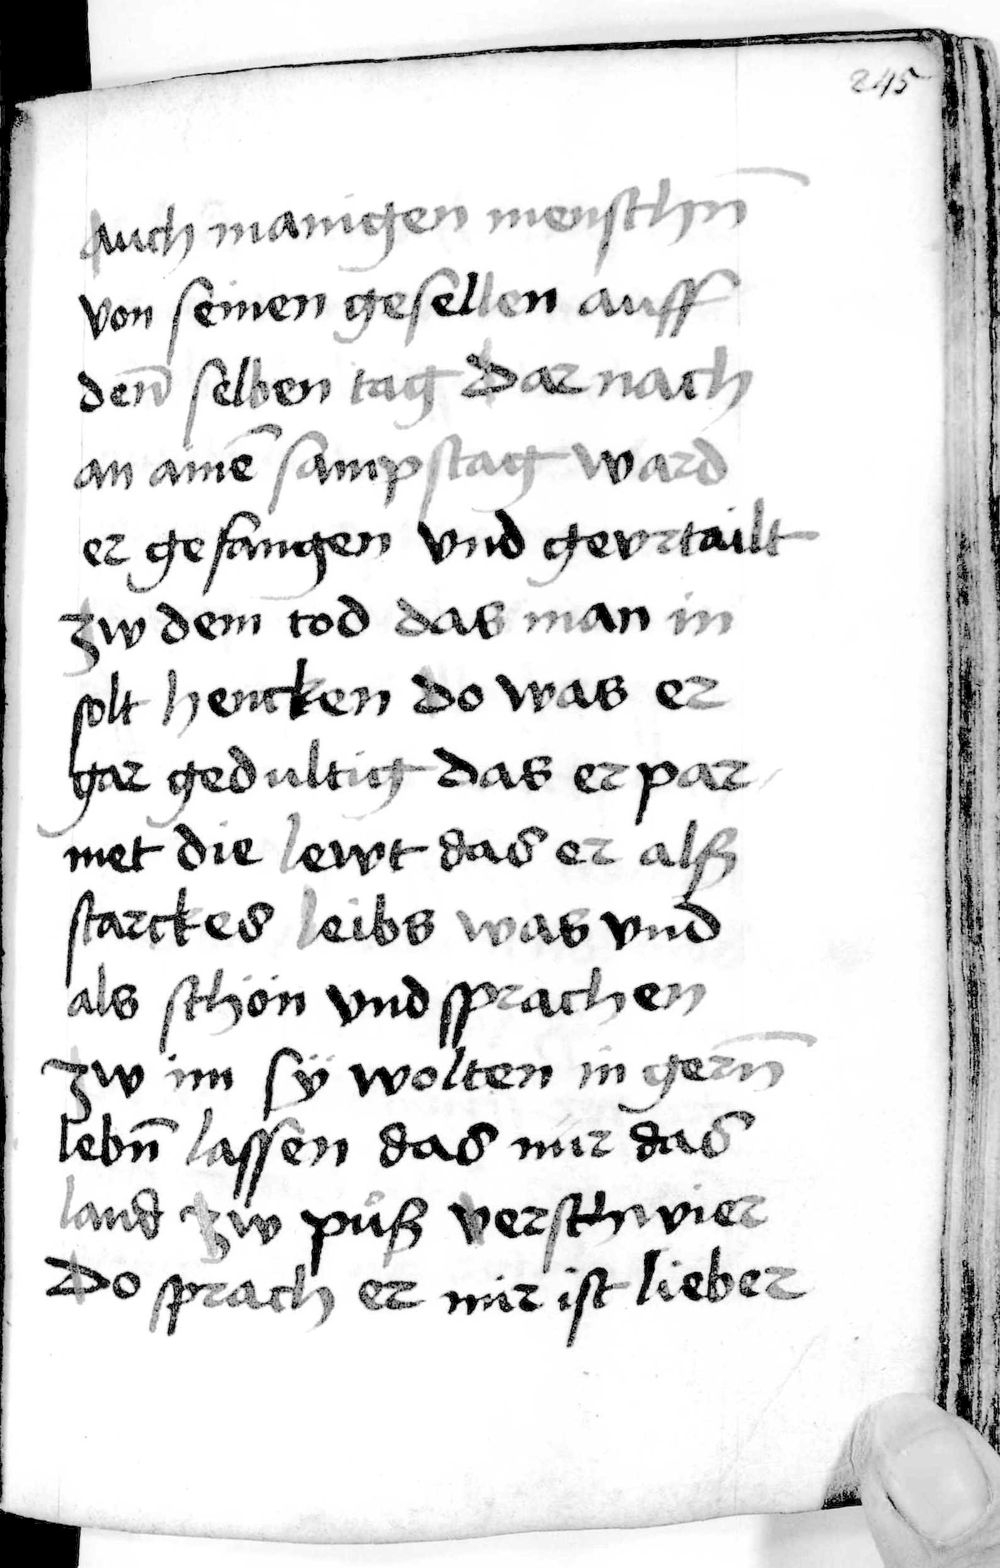 245
Auch manigen menschn̄
von seinen gesellen auff
den̄ selben tag Dar nach
an aimē sampstag ward
er gefangen vnd gevrtailt
zw dem tod das man in
solt hencken Do was er
gar gedultig das er par
met die lewt das er alß
starckes leibs was vnd
als schön vnd sprachen
zw im sÿ wolten in gern̄
lebn̄ lassen das nur das
land zw puͦß verschwier
Do sprach er mir ist lieber